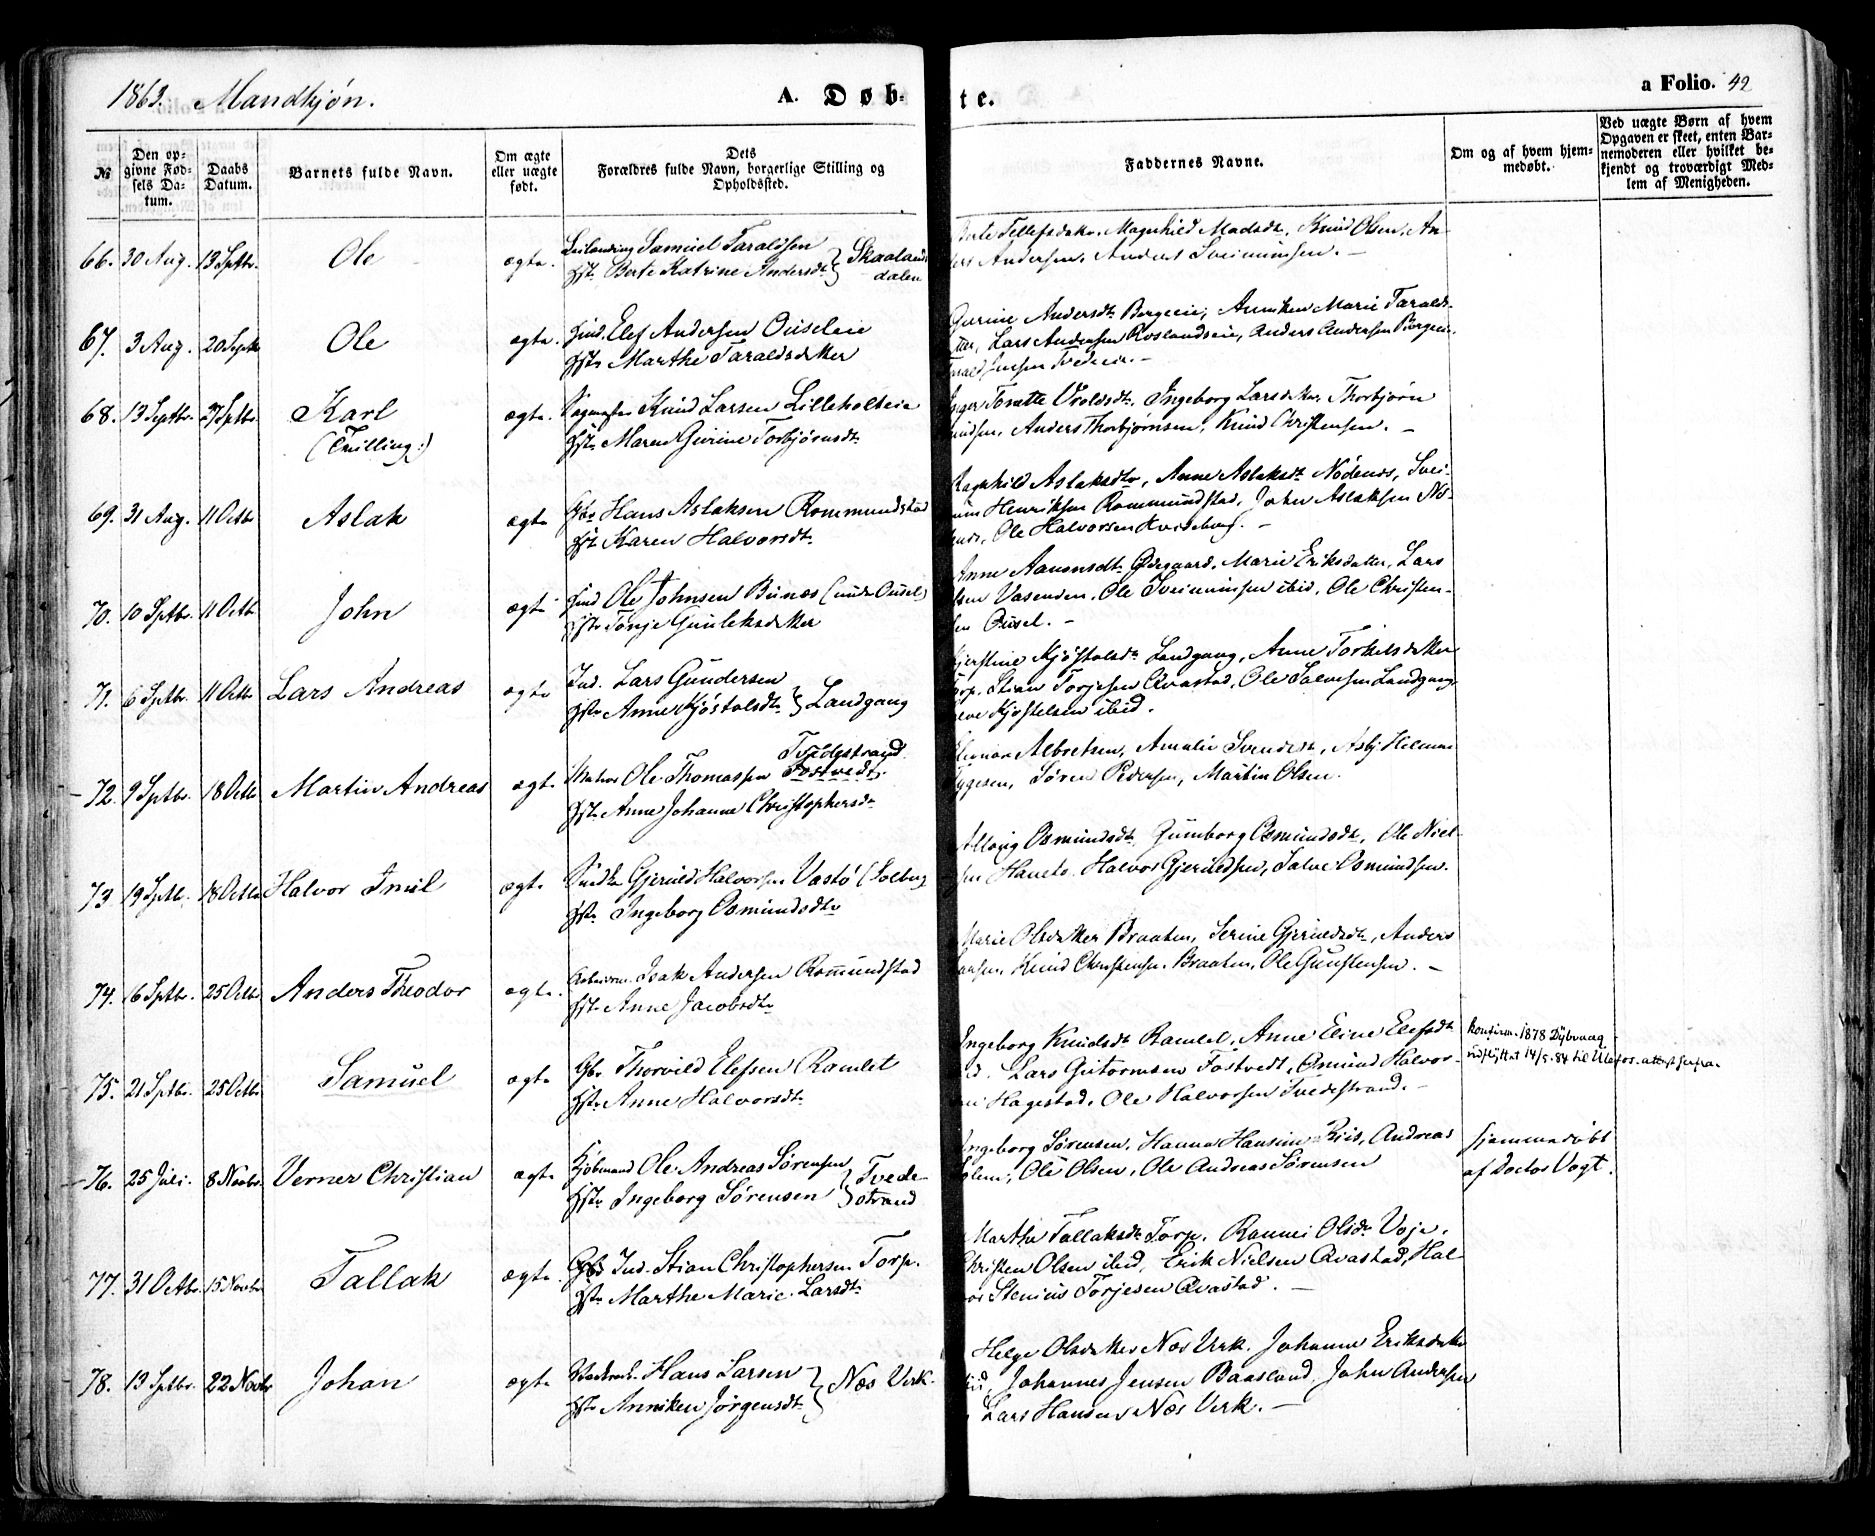 1863. Mandkjøn.
A. Døb-
te.
a Folio. 42
№
Den opgivne Fødsels Datum.
Daabs Datum.
Barnets fulde Navn.
Om ægte eller uægte født.
Dets Forældres fulde Navn, borgerlige Stilling og Opholdssted.
Faddernes Navne.
Om og af hvem hjemmedøbt.
Ved uægte Børn af hvem Opgaven er skeet, enten Barnemoderen eller hvilket bekjendt og troværdigt Medlem af Menigheden.
66. 30 Aug. 13 Septbr. Ole ægte. Samuel Taraldsen
Hst. Berte Katrine Andersdt. } Skaalands
dalen
Berte Tellefsdatter. Magnhild Madsdt, Knud Olsen, An-
ders Andersen. Anders Sveinunsen. –
67. 3 Aug. 20 Septbr Ole ægte. Hmd. Elef Andersen Ouseleie
Hst. Marthe Taraldsdatter
Gurine Andersdt. Bergeeie, Anniken Marie Taralds-
datter, Lars Andersen Roslandseie, Anders Andersen Bergeeie.
68. 13 Septbr. 27 Septbr. Karl ægte. Knud Larsen Lilleholteie
(Tvilling:) Hst. Maren Gurine Torbjørnsdt.
Inger Tonette Uroldsdt, Ingeborg Larsdatter, Thorbjørn
Knudsen, Anders Thorbjørnsen, Knud Christensen. –
69. 31 Aug. 11 Octbr Aslak ægte Gbr Hans Aslaksen Rommundstad
Hst. Karen Halvorsdt.
Ragnhild Aslaksdtr, Anne Aslaksdt. Nødenes, Svei-
nun Henriksen Rommundstad, John Aslaksen Nø-
denes, Ole Halvorsen Kveseberg. –
70. 10 Septbr. 11 Octbr John ægte Hmd Ole Johnsen Bunæs (under Ousel)
Hst. Tonje Gunleksdatter
Anne Aanonsdt. Ødegaard, Marie Eriksdatter, Lars
Olsen Vasenden, Ole Sveinunsen ibid, Ole Christen-
sen Ousel. –
71. 6 Septbr. 11 Octbr Lars Andreas ægte Ind. Lars Gundersen
Hst. Anne Kjøstolsdt. } Landgang
Kjerstine Kjøstolsdt. Landgang, Anne Torkelsdatter
Torp. Stian Torjesen Qvastad, Ole Salvesen Landgang
Kjøstelsen ibid.
72. 9 Septbr. 18 Octbr Martin Andreas ægt. Matros Ole Thomassen Fostvedt. Tvedestrand.
Hst. Anne Johanne Christophersdt.
Albretsen, Amalie Svendsdt, Hilman
Søren Pedersen, Martin Olsen.
73 19 Septbr. 18 Octbr Halvor Emil ægte Gjeruld Halvorsen Vastø (Solberg
Hst. Ingeborg Osmundsdtr
Allevig Osmundsdt, Gunborg Osmundsdt, Ole Niel-
sen Haneto. Halvor Gjeruldsen, Salve Osmundsen.
74. 16 Septbr. 25 Octbr Anders Theodor ægte. Arbeidsm. Isak Andersen Rommundstad
Hst. Anne Jacobsdt.
Marie Olsdatter Braaten, Serine Gjeruldsdt, Anders
Larsen, Knud Christensen Braaten, Ole Gunstensen. –
75. 21 Septbr. 25 Octbr. Samuel ægte Gbr Thorvild Elefsen Ramlet
Hst. Anne Halvorsdt.
Ingeborg Knudsdt Ramlet, Anne Eline Elefsdt
ibid. Lars Guttormsen Fostvedt, Osmund Halvor-
sen Hagestad, Ole Halvorsen Tvedestrand. –
Konfirm. 1878 Dybvaag
udflyttet 14/5. 84 til Ulefos. attest herfra.
76. 25 Juli. 8 Novbr. Verner Christian ægte Kjøbmand Ole Andreas Sørensen
Hst. Ingeborg Sørensen } Tvede-
strand
Ingeborg Sørensen, Hanna Hansine Riis, Andreas
Ole Olsen, Ole Andreas Sørensen
Hjemmedøbt
af Doctor Vogt.
77. 31 Octbr. 15 Novbr Tallak ægte. Gbr Ind. Stian Christophersen Torp.
Hst. Marthe Marie Larsdt.
Marthe Tallaksdt Torp, Rannei Olsdt. Voje,
Christen Olsen ibid, Erik Nielsen Qvastad, Hal-
vor Stenius Torjesen Qvastad. –
78. 13 Septbr. 22 Novbr Johan ægte Hans Larsen
Hst. Anniken Jørgensdt. } Næs Verk.
Helge Olsdatter Næs Verk. Johanne Eriksdatter
ibid, Johannes Jensen Baasland, John Andersen
Lars Hansen Næs Verk. –